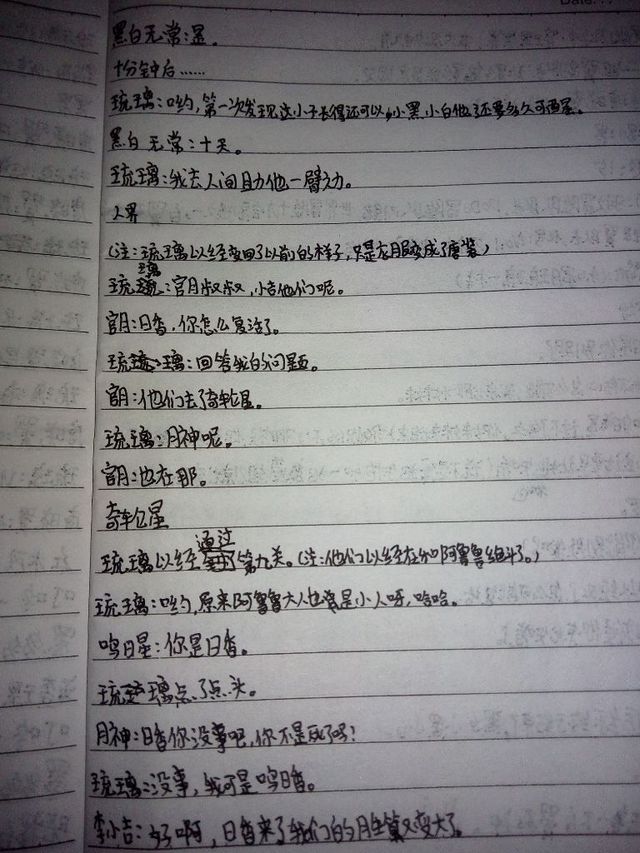 黑白无常:是。
十分钟后……
琉璃:哟,第一次发现这小子长得还可以,小黑小白他还要多久可西星。
黑白无常:十天。
琉璃:我去人间助他一臂之力。
人界
(注:琉璃以经变回了以前的样子,只是衣服变成了唐装)
琉璃:宫月叔叔,小吉他们呢。
宫月:日香,你怎么复活了。
琉璃:回答我的问题。
宫月:他们去了奇轮星。
琉璃:月神呢。
宫月:也在那。
奇轮星
琉璃以经通过第九关。(注:他们以经在和阿鲁鲁组斗了。)
琉璃:哟,原来阿鲁鲁大人也曾是小人呀,哈哈。
鸣日星:你是日香。
琉璃点了点头。
月神:日香你没事吧,你不是死了吗?
琉璃:没事,我可是鸣日香。
李小吉:好啊,日香来了我们的胜算又变大了。